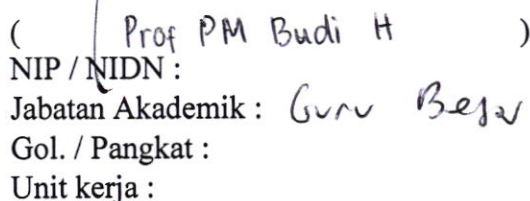 ( Prof PM Budi H )
NIP / NIDN :
Jabatan Akademik : Guru Besar
Gol. / Pangkat :
Unit kerja :